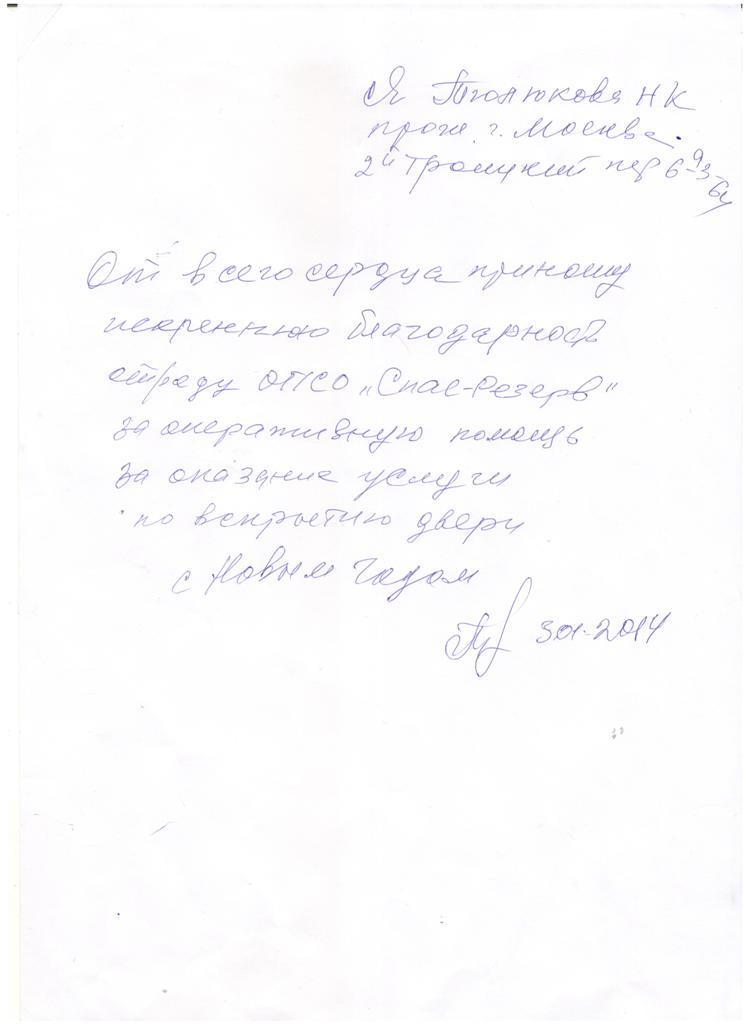 Я Тюлюкова Н К
прож. г. Москва.
2й Троицкий пер 6-9-3-64
От всего сердца приношу
искреннюю благодарность
отряду ОПСО „Спас-Резерв"
за оперативную помощь
за оказание услуги
по вскрытию двери
с Новым Годом
3 01. 2014